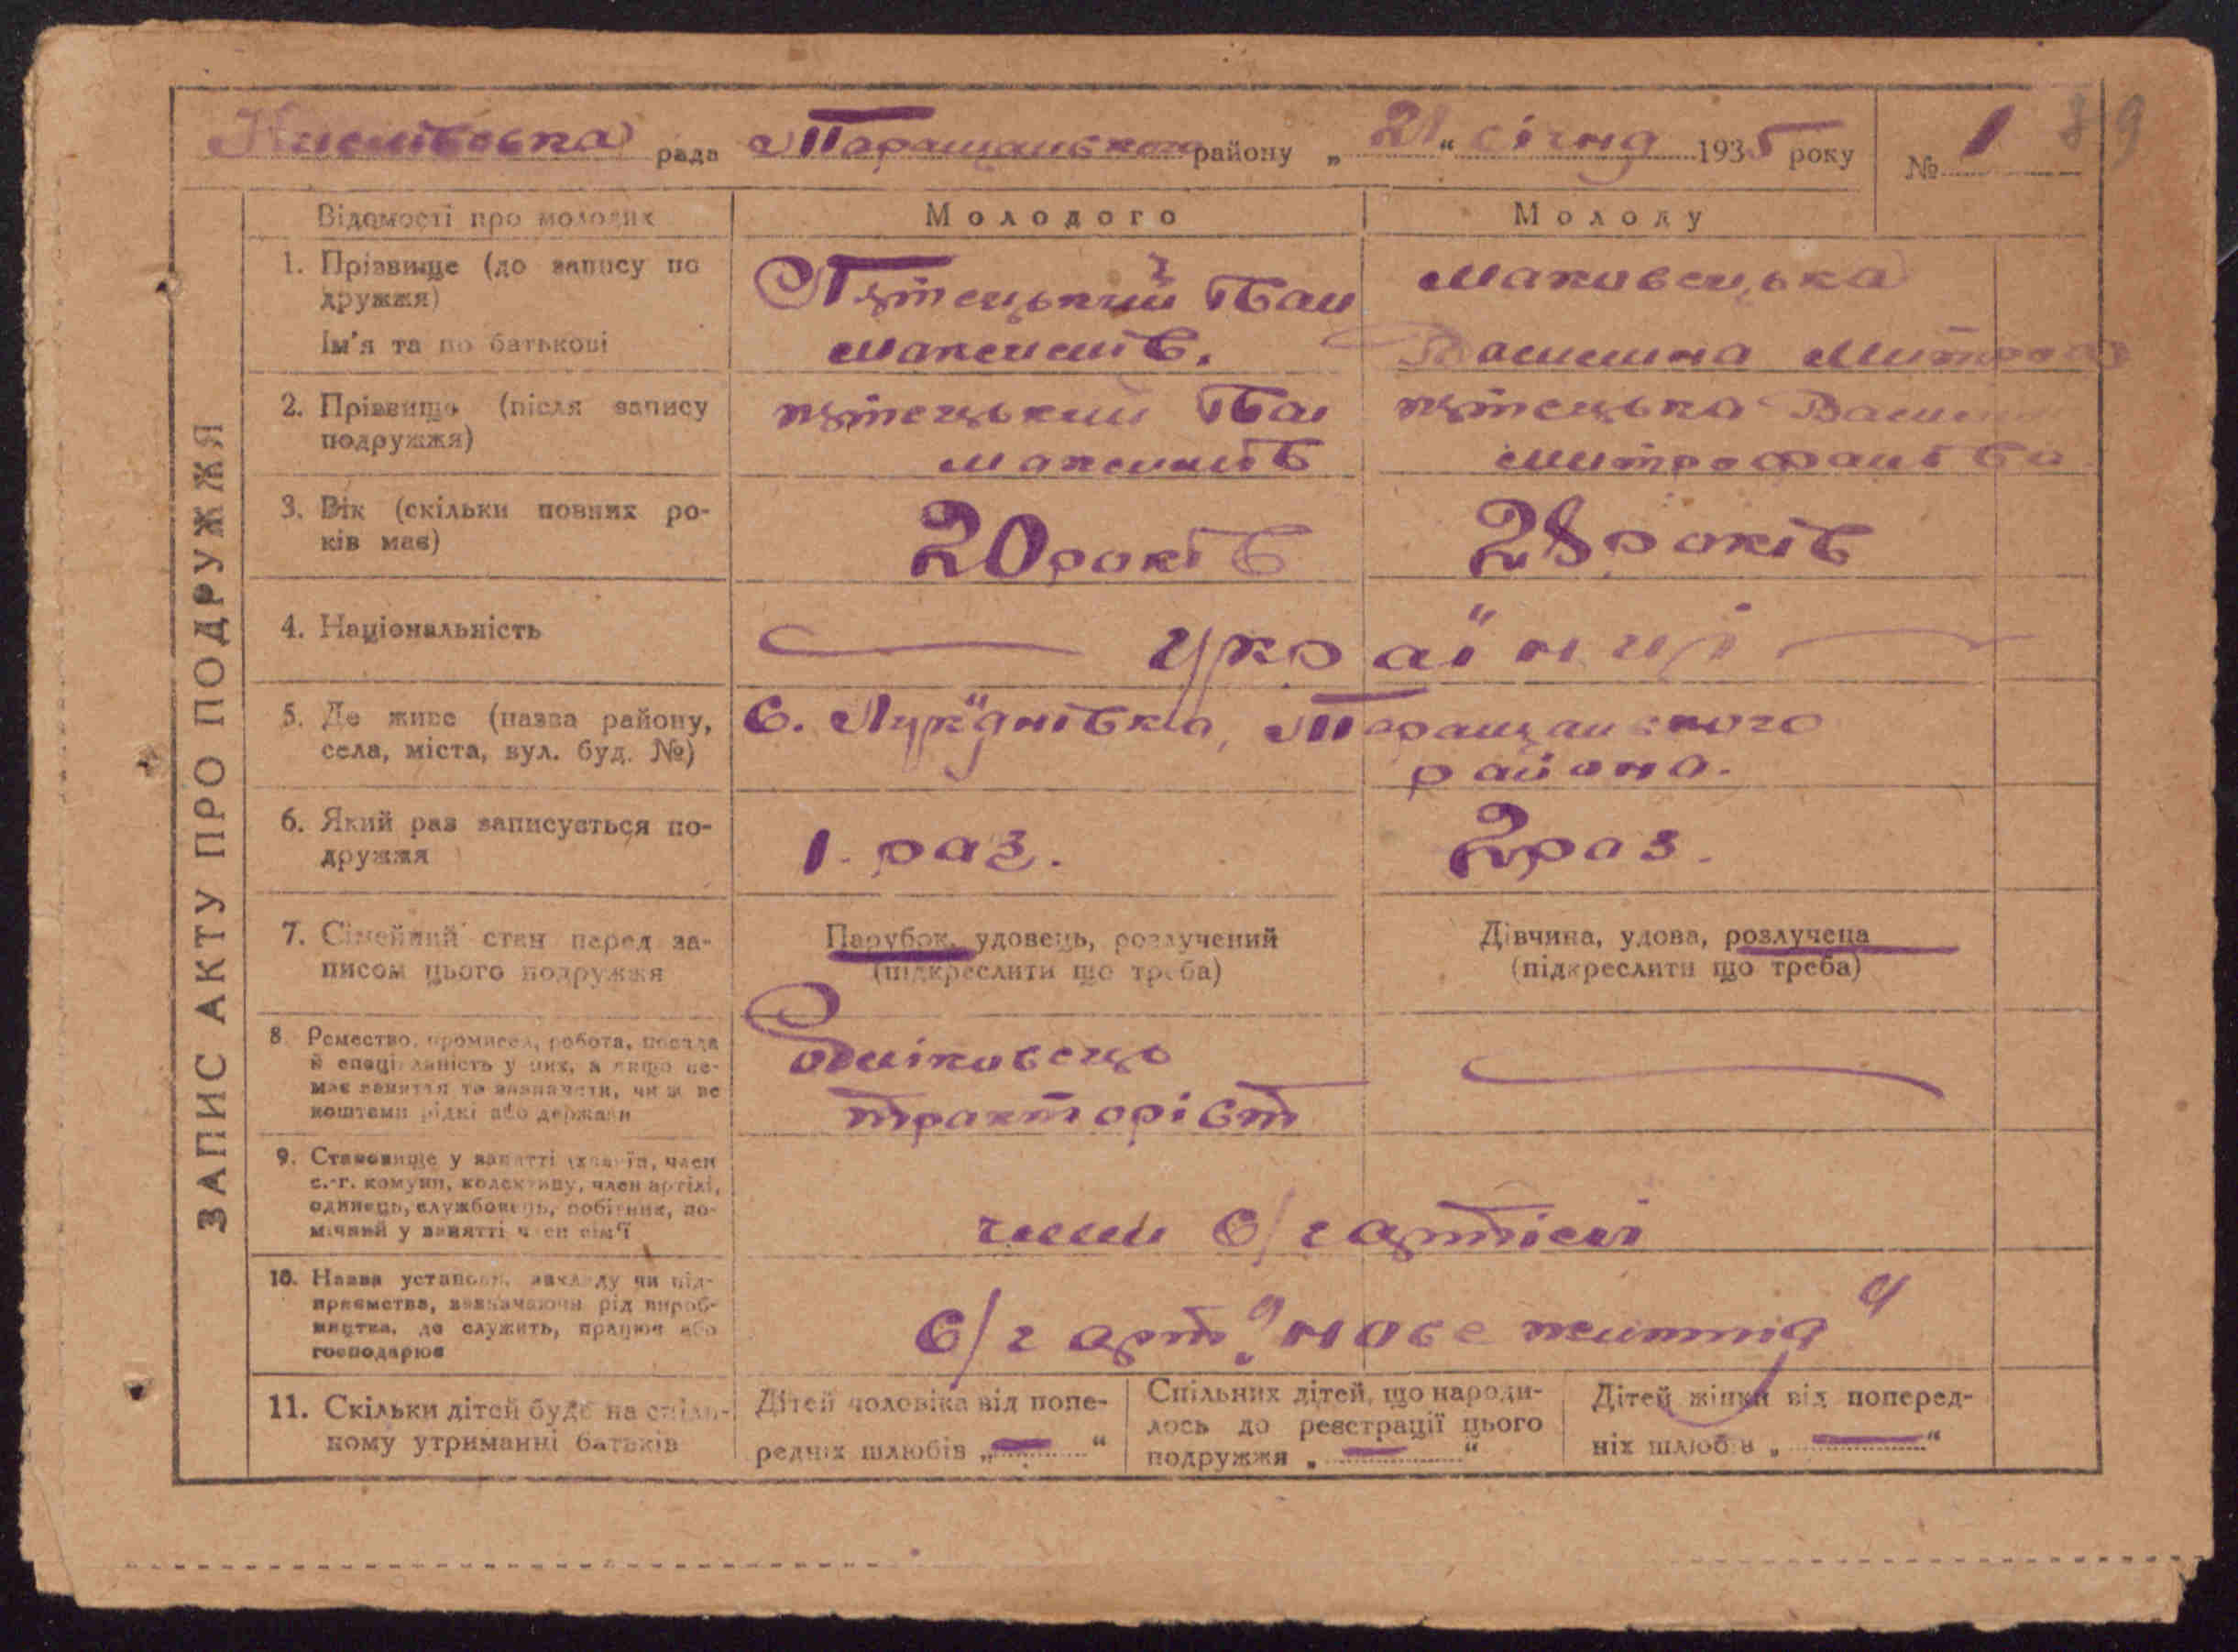 рада Таращанського району „ 21 “ січня 1935 року № 1 89
ЗАПИС АКТУ ПРО ПОДРУЖЖЯ
Відомості про молодих Молодого Молоду
1. Прізвище (до запису по
дружжя)
Ім'я та по батькові
Пятецький Іван
Максимів.
Маковецька
Василина
2. Прізвище (після запису
подружжя)
пятецький
максимів
пятецька
митрофанівна
3. Вік (скільки повних ро-
ків має)
20 років
28 років
4. Національність
українці
5. Де живе (назва району,
села, міста, вул. буд. №)
С. Лук'янівка, Таращанського
района.
6. Який раз записується по-
дружжя
1. раз.
2 раз.
7. Сімейний стан перед за-
писом цього подружжя
Парубок, удовець, розлучений
(підкреслити що треба)
Дівчина, удова, розлучена
(підкреслити що треба)
8 Ремество, промисел, робота, посада
й спеціяльність у них, а якщо не-
має заняття то зазначити, чи на
коштами рідні або держави
тракторіст
9. Становище у занятті (хазяїн, член
с.-г. комуни, колективу, член артілі,
одинець, службовець, робітник, по-
мічний у занятті член сім'ї
член с/г артілі
10. Назва установи, закладу чи під-
приємства, зазначаючи рід вироб-
ництва, де служить, працює або
господарює
с/г арт. "нове життя"
11. Скільки дітей буде на спіль-
ному утриманні батьків
Дітей чоловіка від попе-
редніх шлюбів „ — “
Спільних дітей, що народи-
лось до реєстрації цього
подружжя „ — “
Дітей жінки від поперед-
ніх шлюбів „ — “